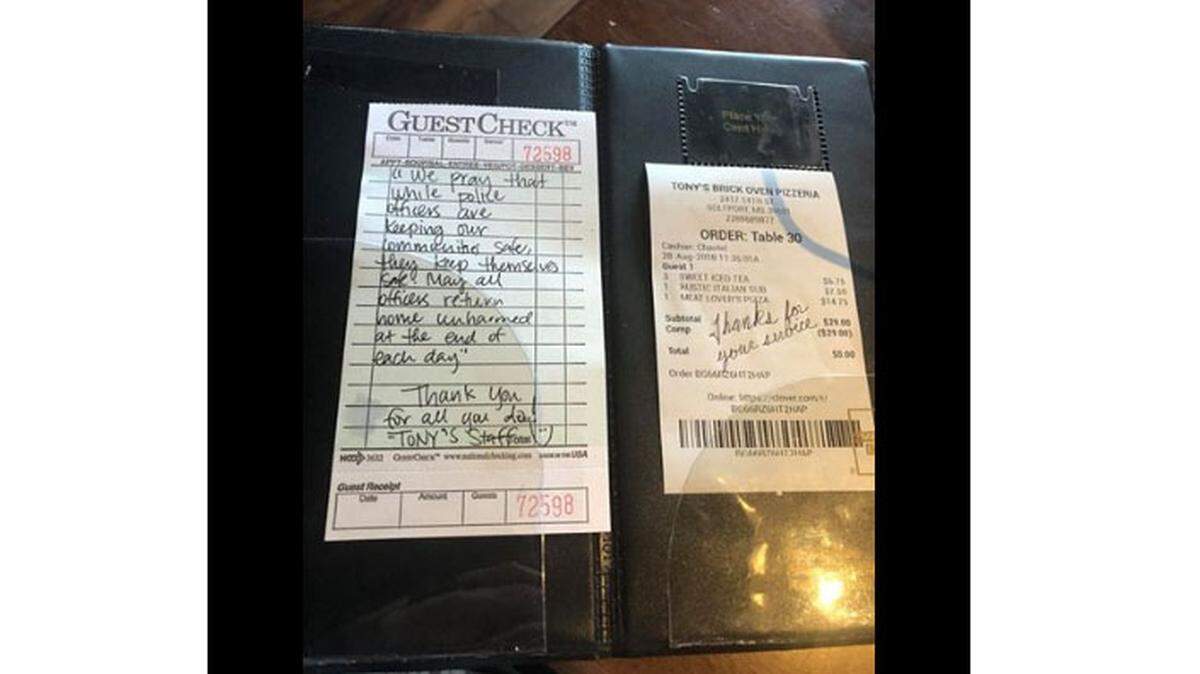 GUESTCHECK™
Date Table Guests Server 72598
APPT-SOUP/SAL-ENTREE-VEG/POT-DESSERT-BEV
"We pray that
while police
officers are
keeping our
communities safe,
they keep themselves
safe! May all
officers return
home unharmed
at the end of
each day"
Thank you
for all you do!
"TONY'S Staff" :)
3632 GUESTCHECK™ www.nationalchecking.com MADE IN THE USA
Guest Receipt
Date Amount Guests 72598
Place Your
Card Here
TONY'S BRICK OVEN PIZZERIA
2417 14TH ST
GULFPORT, MS 39501
2288689877
ORDER: Table 30
Cashier: Chantel
28-Aug-2018 11:36:01A
Guest 1
3 SWEET ICED TEA $6.75
1 RUSTIC ITALIAN SUB $7.50
1 MEAT LOVER'S PIZZA $14.75
Subtotal $29.00
Comp ($29.00)
Thanks for
your service
Total $0.00
Order
Online: https://clover.com/r/